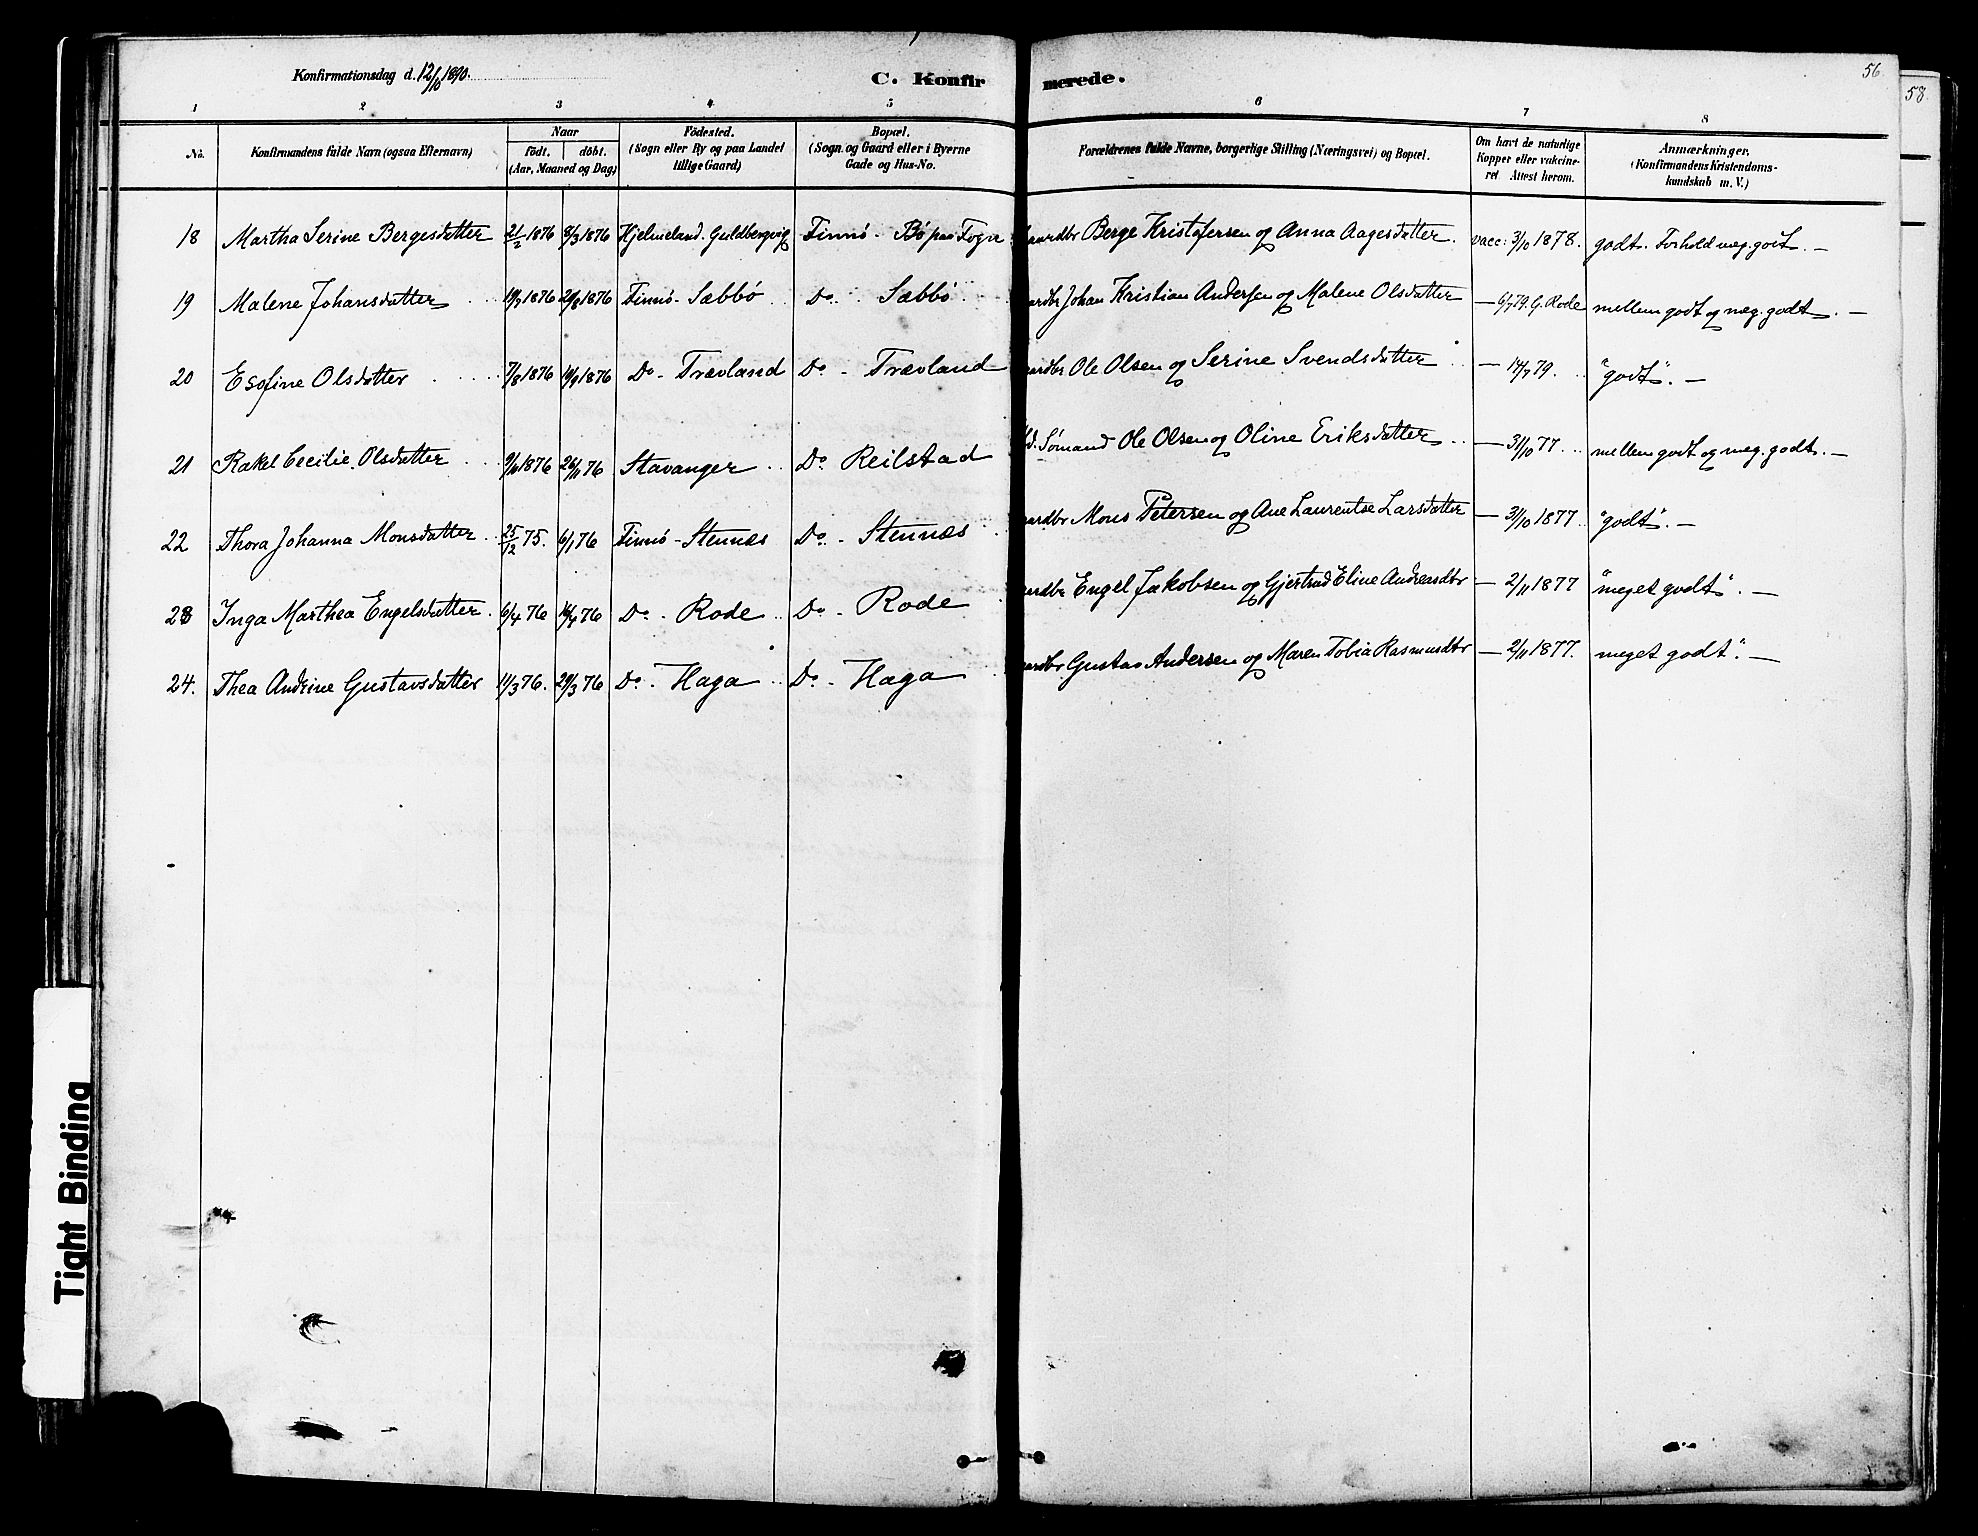 Konfirmationsdag d. 12/10 1890.
C. Konfirmerede.
56
58
1 2 3 4 5 6 7 8
No.
Konfirmandens fulde Navn (ogsaa Efternavn)
Naar
födt. döbt.
(Aar, Maaned og Dag)
Födested.
(Sogn eller By og paa Landet
tillige Gaard)
Bopæl.
(Sogn og Gaard eller i Byerne
Gade og Hus-No.
Forældrenes fulde Navne, borgerlige Stilling (Næringsvei) og Bopæl.
Om havt de naturlige
Kopper eller vakcine-
ret Attest herom.
Anmærkninger.
(Konfirmandens Kristendoms-
kundskab m. V.)
18 Martha Serine Bergesdatter 21/2 1876 8/3 1876 Hjelmeland. Guldbergvig Finnö - Bö paa Fogn aardbr Berge Kristofersen og Anna Aagesdatter. vacc: 3/10 1878. godt. Forhold meg. godt. —
19 Malene Johansdatter 1876 20/8 1876 Finnö - Sæbbö Do. Sæbbö ardbr Johan Kristian Andersen og Malene Olsdatter — 6/7 79. G. Rode mellem godt og meg. godt. —
20 Esofine Olsdatter 7/8 1876 1876 Do - Trævland Do - Trævland ardbr Ole Olsen og Serine Svendsdatter — 14/7 79. "godt". —
21 Rakel Cecilie Olsdatter 1876 26/11 76 Stavanger Do. Reilstad d. Sömand Ole Olsen og Oline Eriksdatter — 31/10 77. mellem godt og meg. godt. —
22 Thora Johanna Monsdatter 25/12 75. 6/1 76 Finnö - Stennæs Do. - Stennæs aardbr Mons Petersen og Ane Laurentse Larsdatter — 31/10 1877 "godt". —
23 Inga Marthea Engelsdatter 6/4 76 16/4 76 Do - Rode Do - Rode ardbr Engel Jakobsen og Gjertrud Eline Andreasdtr — 2/11 1877 "meget godt". —
24. Thea Andrine Gustavsdatter 11/3 76. 29/3 76 Do - Haga Do - Haga ardbr Gustav Andersen og Maren Tobia Rasmusdtr — 2/11 1877. meget godt". —
Tight Binding